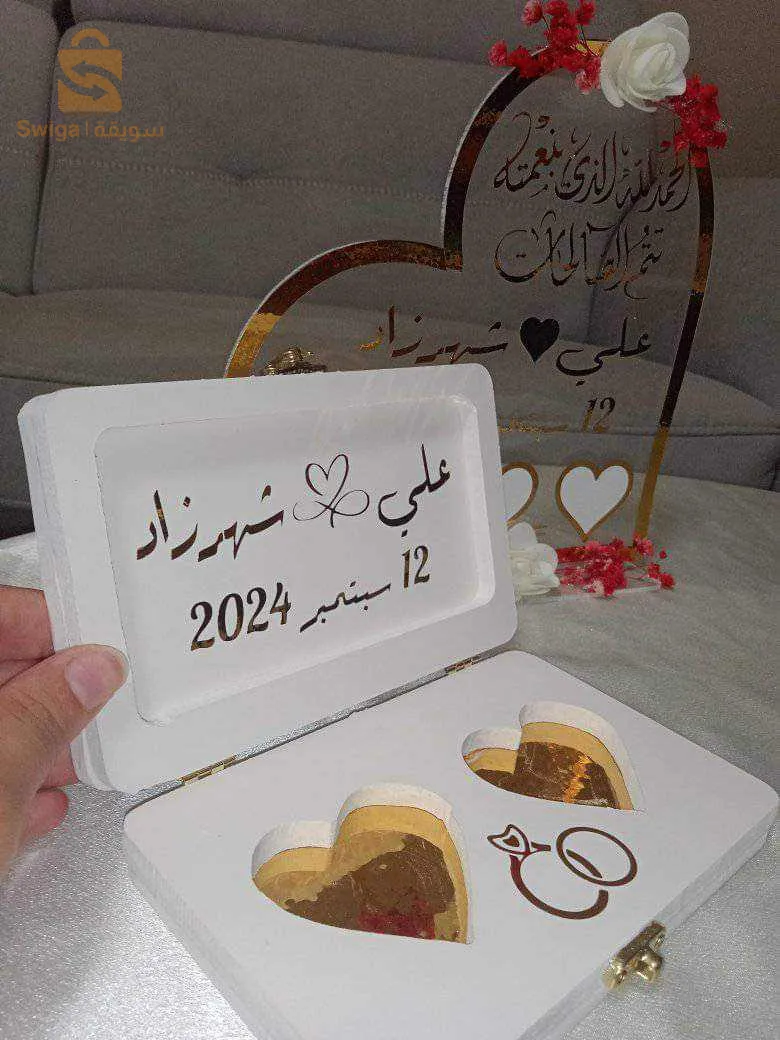 Swiga | سويقة
الحمد لله الذي بنعمته
تتم الصالحات
علي شهرزاد
12 سبتمبر
علي شهرزاد
12 سبتمبر 2024